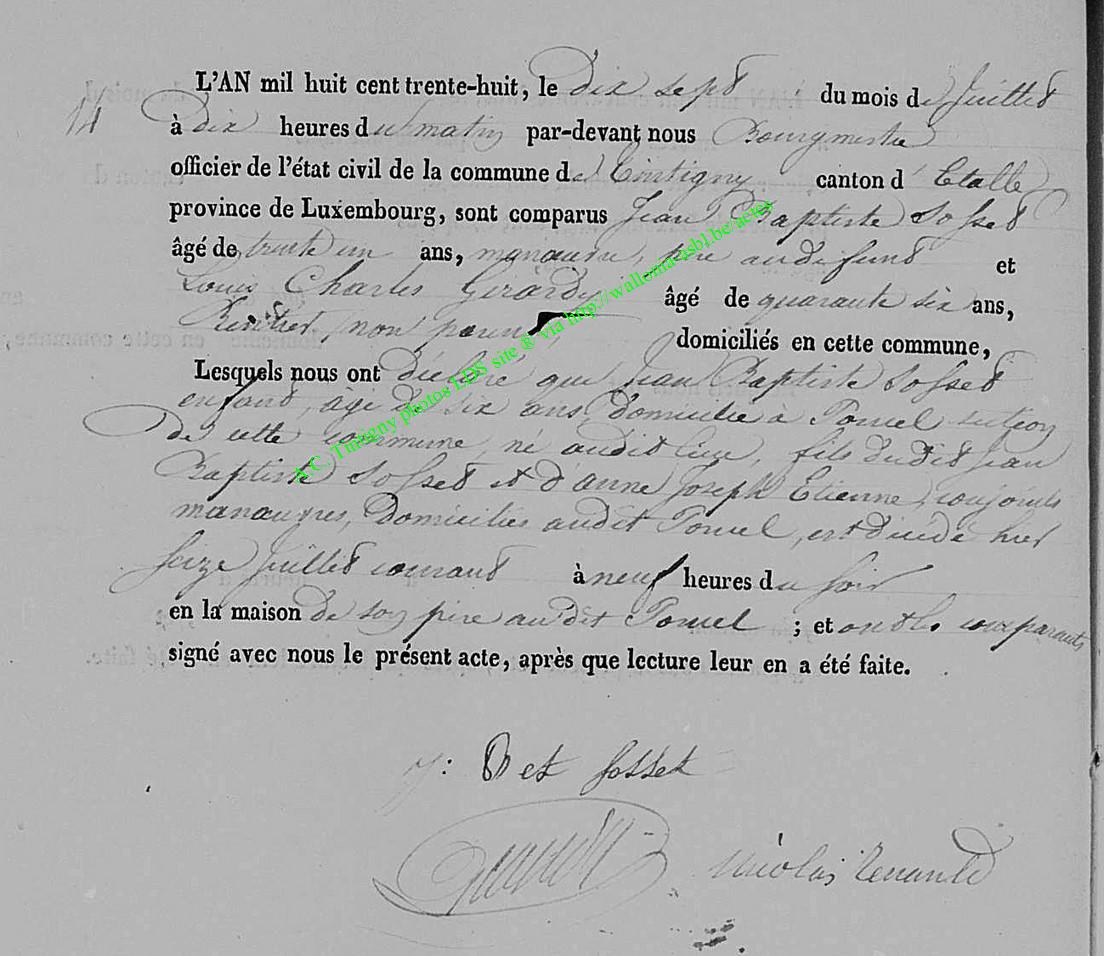 L'AN mil huit cent trente-huit, le dix sept du mois de Juillet
14
à dix heures du matin par-devant nous Bourgmestre
officier de l'état civil de la commune de Tintigny canton d'Etalle
province de Luxembourg, sont comparus Jean Baptiste Sosset
âgé de trente un ans, manœuvre, père au défunt et
Louis Charles Gérardy âgé de quarante six ans,
Rentier, non parent domiciliés en cette commune,
Lesquels nous ont déclaré que Jean Baptiste Sosset
enfant, âgé de six ans, domicilié à Poncel section
de cette commune, né audit lieu, fils dudit Jean
Baptiste Sosset et d'anne Joseph Etienne, conjoints
manœuvres, domiciliés audit Poncel, est décédé hier
seize Juillet courant à neuf heures du soir
en la maison de son père audit Poncel ; et ont les comparants
signé avec nous le présent acte, après que lecture leur en a été faite.
j: Bt et sosset
nicolas Renauld
A.C. Tintigny photos LDS site & via http://wallonia-asbl.be/actes